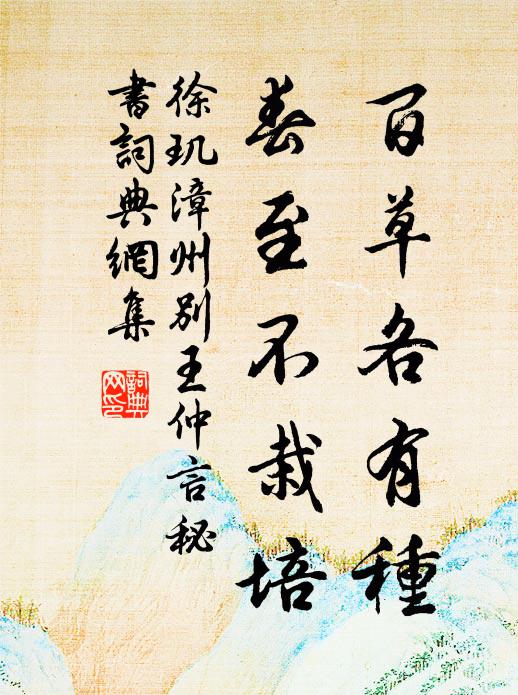 百草各有種
春至不栽培
徐玑漳州别王仲言秘
書詞典網集
詞典
网印